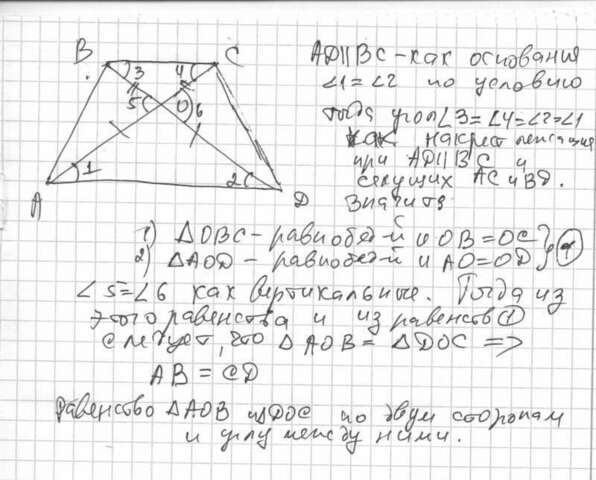 B
C
3
4
5
O
6
1
2
A
D
AD||BC - как основания
∠1=∠2 по условию
тогда угол ∠3=∠4=∠2=∠1
как накрест лежащие
при AD||BC и
секущих AC и BD.
Значит
1) △OBC - равнобед-й и OB=OC
2) △AOD - равнобед-й и AO=OD } 1
∠5=∠6 как вертикальные. Тогда из
этого равенства и из равенств 1
следует, что △AOB = △DOC =>
AB = CD
равенство △AOB и △DOC по двум сторонам
и углу между ними.